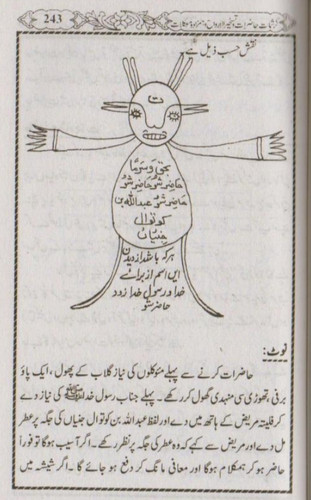 243
نقش حسب ذیل
ت
بحق و سرمیا
حاضر شو حاضر شو
حاضر شو عبداللہ بن
کوتوال
جنیاں
ہر کہ باشد از دین
ایں اسم از برائے
خدا و رسول خدا زود
حاضر شو
نوٹ:
حاضرات کرنے سے پہلے مؤکلوں کی نیاز گلاب کے پھول، ایک پاؤ
برفی، تھوڑی سی مہندی گھول کر رکھے۔ پہلے جناب رسول خدا ﷺ کی نیاز دے
کر فلیتہ مریض کے ہاتھ میں دے اور لفظ عبداللہ بن کوتوال جنیاں کی جگہ پر عطر
مل دے اور مریض سے کہے کہ وہ عطر کی جگہ پر نظر رکھے۔ اگر آسیب ہوگا تو فورا
حاضر ہو کر ہمکلام ہوگا اور معافی مانگ کر دفع ہو جائے گا۔ اگر شیشہ میں